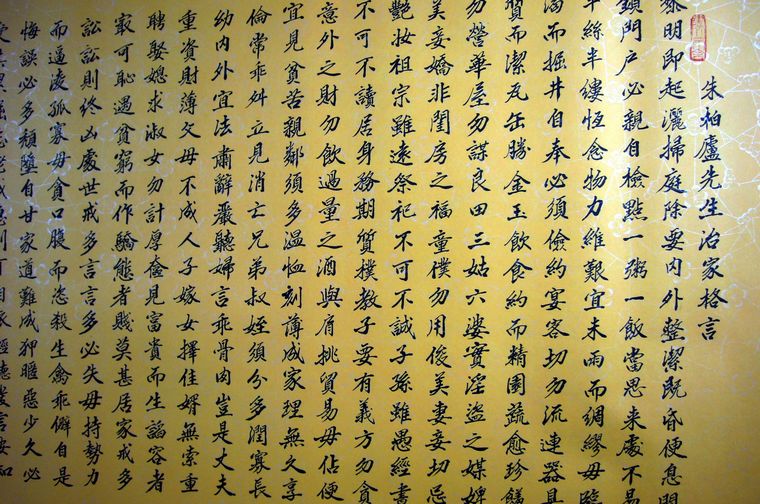 朱柏廬先生治家格言
黎明即起灑掃庭除要內外整潔既昏便息關
鎖門戶必親自檢點一粥一飯當思来處不易
半絲半縷恆念物力維艱宜未雨而綢繆毋臨
渴而掘井自奉必須儉約宴客切勿流連器具
質而潔瓦缶勝金玉飲食約而精園蔬愈珍饈
勿營華屋勿謀良田三姑六婆實淫盜之媒婢
美妾嬌非閨房之福童僕勿用俊美妻妾切忌
艷妝祖宗雖遠祭祀不可不誠子孫雖愚經書
不可不讀居身務期質樸教子要有義方勿貪
意外之財勿飲過量之酒與肩挑貿易毋佔便
宜見貧苦親鄰須多溫恤刻薄成家理無久享
倫常乖舛立見消亡兄弟叔姪須分多潤寡長
幼內外宜法肅辭嚴聽婦言乖骨肉豈是丈夫
重資財薄父母不成人子嫁女擇佳婿無索重
聘娶媳求淑女勿計厚奩見富貴而生諂容者
最可恥遇貧窮而作驕態者賤莫甚居家戒多
訟訟則終凶處世戒多言言多必失毋持勢力
而逼凌孤寡毋貪口腹而恣殺生禽乖僻自是
悔誤必多頹墮自甘家道難成狎暱惡少久必